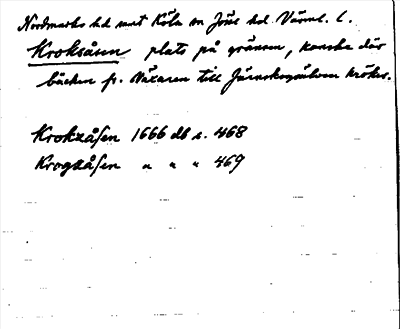 Nordmarks hd mot Köla sn Jöse hd. Värml. l.
Kroksåsen plats på gränsen, kanske där
bäcken fr. Växaren till Järnskogsälven kröker.
Krokzåsen 1666 db s. 468
Krogzåsen " " " 469